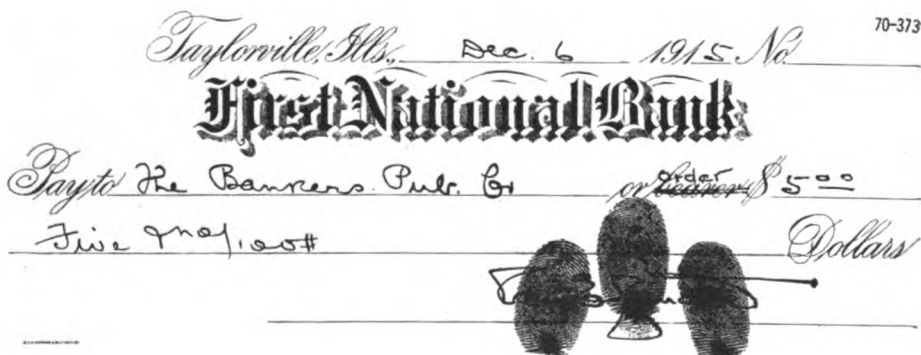 70-373
Taylorville, Ills., Dec. 6 1915 No.
First National Bank
Pay to The Bankers. Pub. Co or bearer order $ 5 00
Five no/100# Dollars